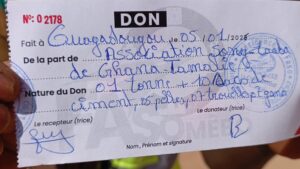 N°: 0 2178
DON
Fait à Ouagadougou le 05 / 01 / 2028
De la part de Association Songtaaba
de Ghana Tamalé
Nature du Don 01 tonne + 10 sacs de
ciment, 15 pelles, 07
Le récepteur (trice)
Le donateur (trice)
Nom, Prénom et signature